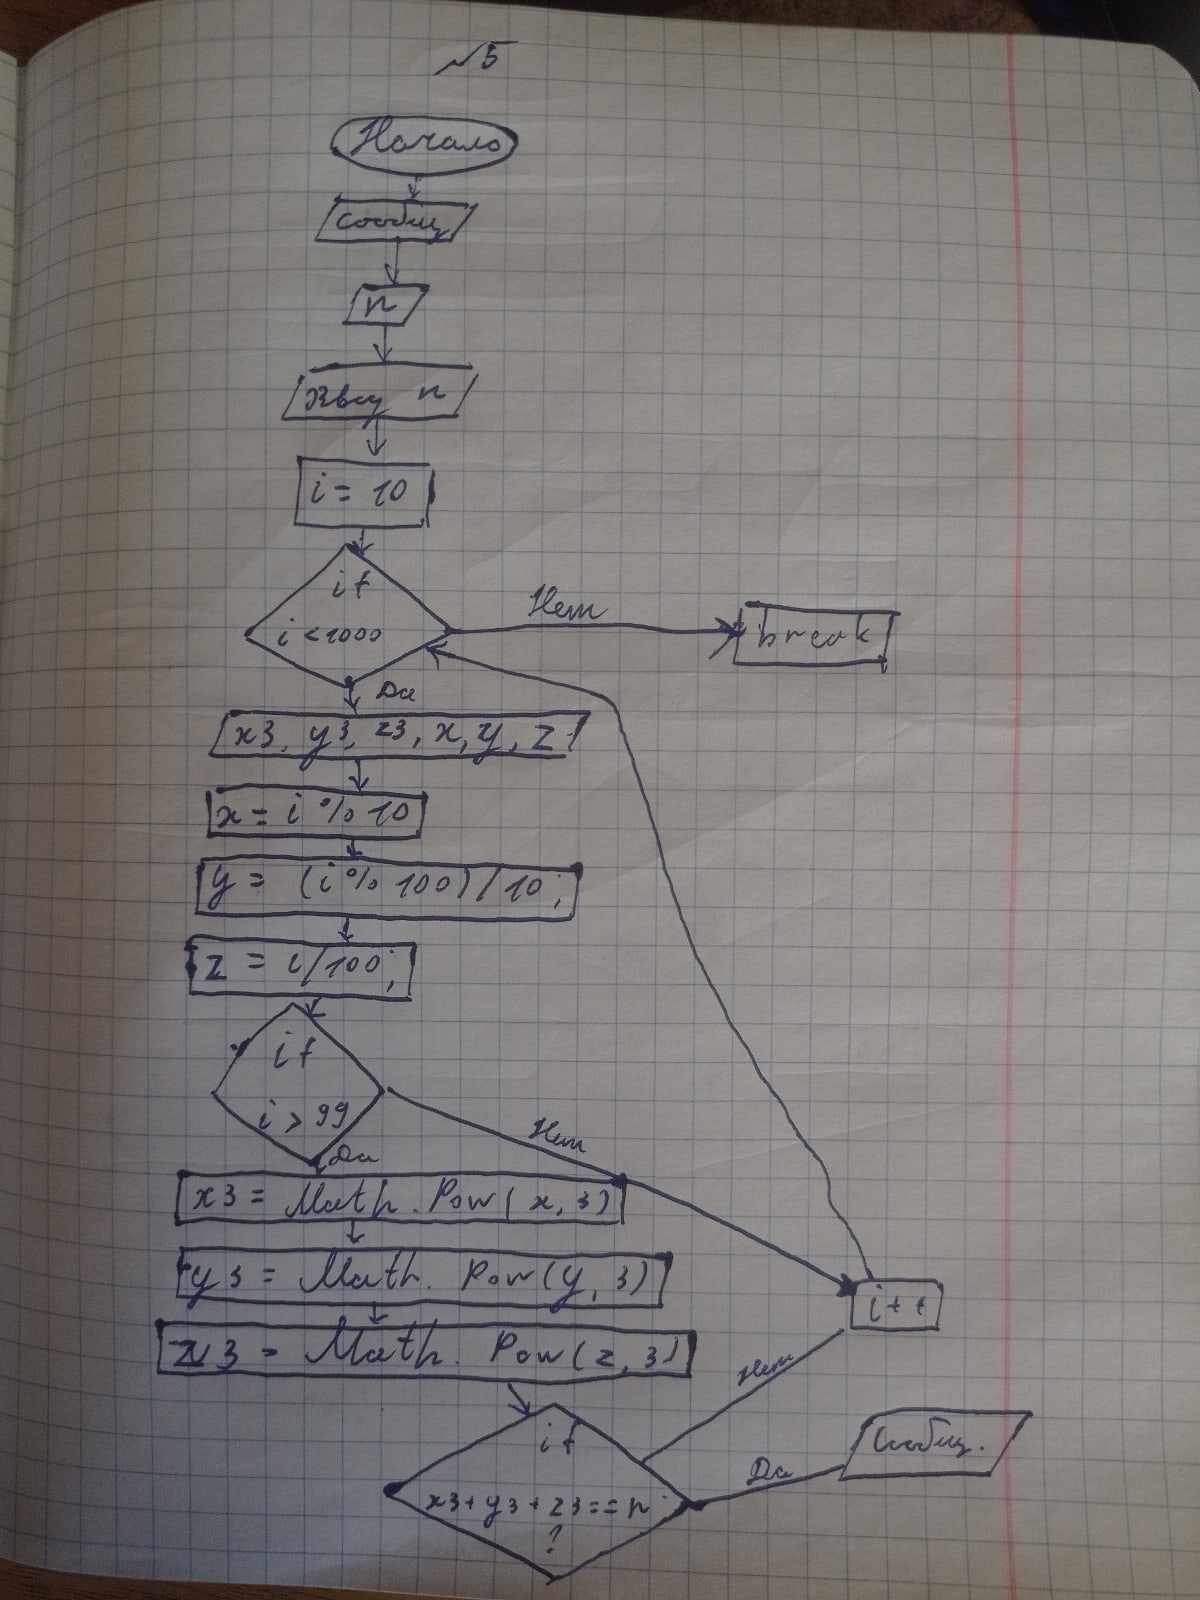 №5
Начало
Сообщ
n
Ввод n
i = 10
if
i < 1000
Нет
break
Да
x3, y3, z3, x, y, z
x = i % 10
y = (i % 100) / 10;
z = i/100;
if
i > 99
Нет
Да
x3 = Math.Pow(x, 3)
y3 = Math.Pow(y, 3)
z3 = Math.Pow(z, 3)
i++
Нет
if
x3+y3+z3==n
?
Да
Сообщ.